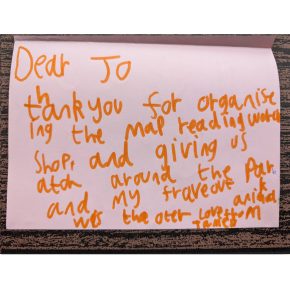 Dear Jo
thankyou for organise
ing the map reading work
shop, and giving us
atoh around the Par
k
and my fraveout animal
was the oter Love from
James